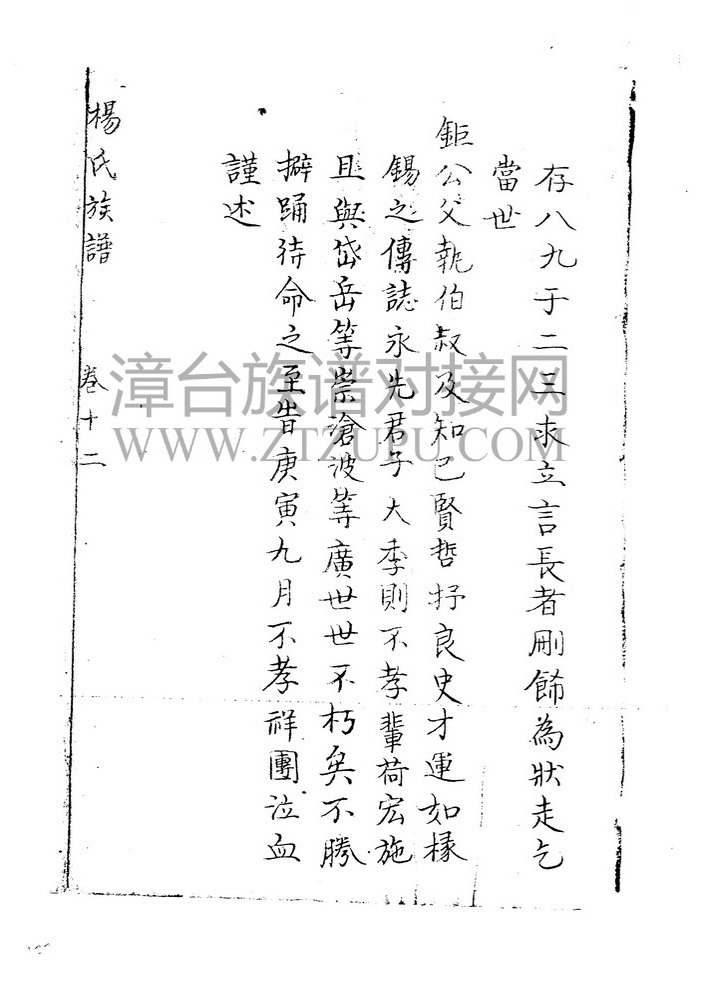 存八九于二三求立言長者刪飾為狀走乞
當世
鉅公父執伯叔及知己賢哲抒良史才運如椽
錫之傳誌永先君子大季則不孝輩荷宏施
且與岱岳等崇滄波等廣世世不朽矣不勝
擗踊待命之至昔庚寅九月不孝祥團泣血
謹述
楊氏族譜 卷十二
漳台族谱对接网
WWW.ZTZUPU.COM